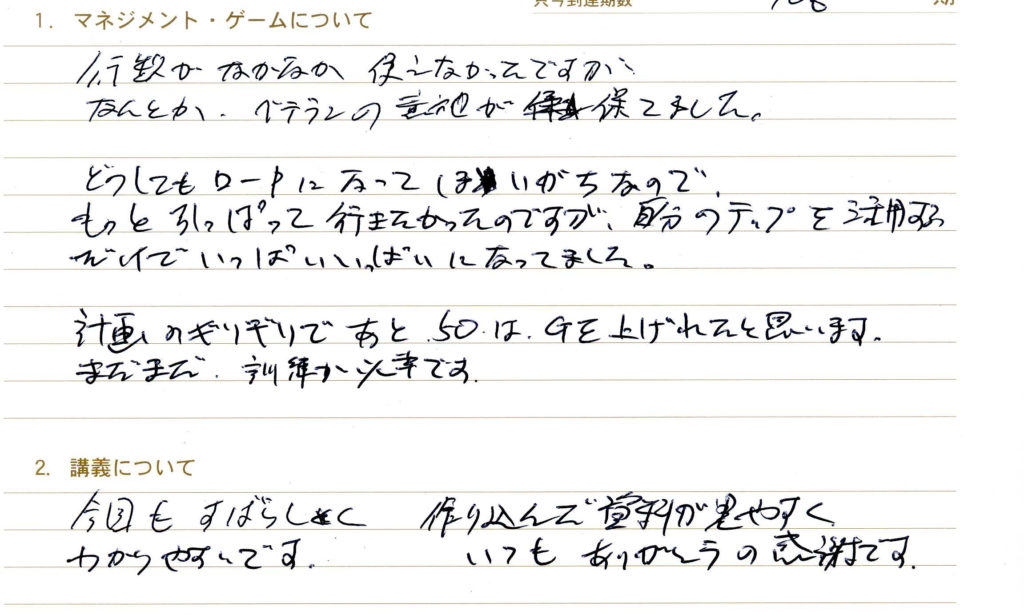 只今到達期数 期
1. マネジメント・ゲームについて
行数がなかなか使えなかったですが、
なんとか、ベテランの意地が保てました。
どうしてもロードになってしまいがちなので、
もっと引っぱって行きたかったのですが、自分のテップを活用する
だけでいっぱいいっぱいになってました。
計画のギリギリであと50は、Gを上げれたと思います。
まだまだ、訓練が必要です。
2. 講義について
今回もすばらしく 作り込んで資料が見やすく
わかりやすいです。 いつもありがとうの感謝です。